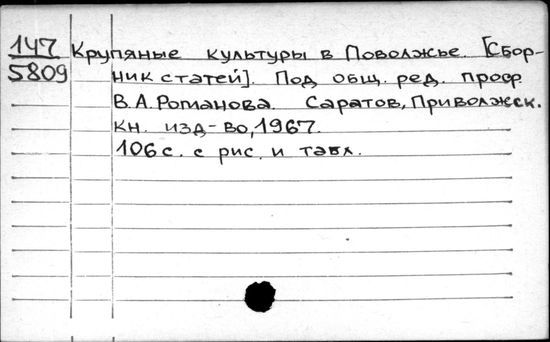 147 Крупяные культуры в Поволжье. [Сбор-
5809 ник статей]. Под общ. ред. проф.
В.А.Романова. Саратов, Приволжск.
кн. изд-во, 1967.
106 с. с рис. и табл.